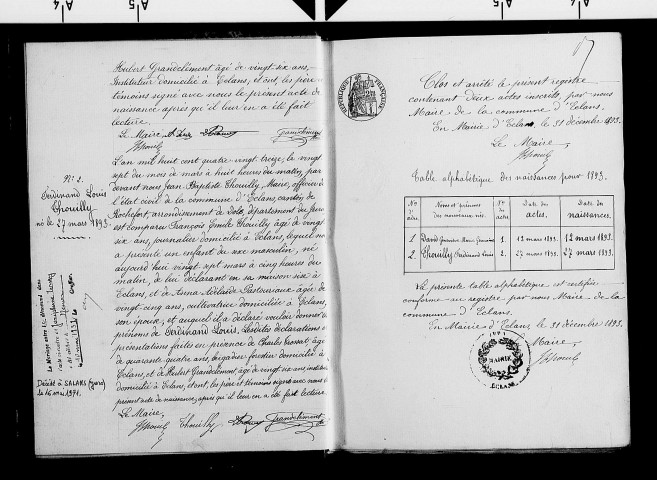 Hubert Grandclément âgé de vingt six ans,
Instituteur domicilié à Eclans, et ont, les père et
témoins signé avec nous le présent acte de
naissance après qu'il leur en a été fait
lecture.
Le Maire,
Nº 2.
Ferdinand Louis
Thouilly
né le 27 mars 1893.
L'an mil huit cent quatre-vingt-treize, le vingt
sept du mois de mars à huit heures du matin, par
devant nous Jean-Baptiste Thouilly, Maire, officier de
l'état civil de la commune d'Eclans, canton de
Rochefort, arrondissement de Dole, département du Jura
est comparu François Emile Thouilly âgé de vingt
six ans, journalier domicilié à Eclans, lequel nous
a présenté un enfant du sexe masculin, né
aujourd'hui vingt sept mars à cinq heures du
matin, de lui déclarant en sa maison sise à
Eclans, et de Anna-Adélaïde Pastoureaux âgée de
vingt cinq ans, cultivatrice domiciliée à Eclans,
son épouse, et auquel il a déclaré vouloir donner les
prénoms de Ferdinand Louis. Lesdites déclarations et
présentations faites en présence de Charles
de quarante quatre ans, brigadier forestier domicilié à
Eclans, et de Hubert Grandclément, âgé de vingt six ans, instituteur
domicilié à Eclans, et ont, les père et témoins signé avec nous le
présent acte de naissance, après qu'il leur en a été fait lecture.
Le Maire,
Thouilly Grandclément
Décédé à SALANS (Jura)
le 16 mai 1971.
REPUBLIQUE FRANÇAISE
Clos et arrêté le présent registre
contenant deux actes inscrits, par nous
Maire de la commune d'Eclans.
En Mairie d'Eclans, le 31 décembre 1893.
Le Maire,
Table alphabétique des naissances pour 1893.
Nº d'ordre Noms et prénoms des nouveaux-nés. Nº des actes. Date des actes. Date des naissances.
1 David 1. 12 mars 1893. 12 mars 1893.
2 Thouilly Ferdinand Louis 2. 27 mars 1893. 27 mars 1893.
La présente table alphabétique est certifiée
conforme au registre, par nous Maire de la
commune d'Eclans.
En Mairie d'Eclans, le 31 décembre 1893.
Le Maire,
MAIRIE
ECLANS